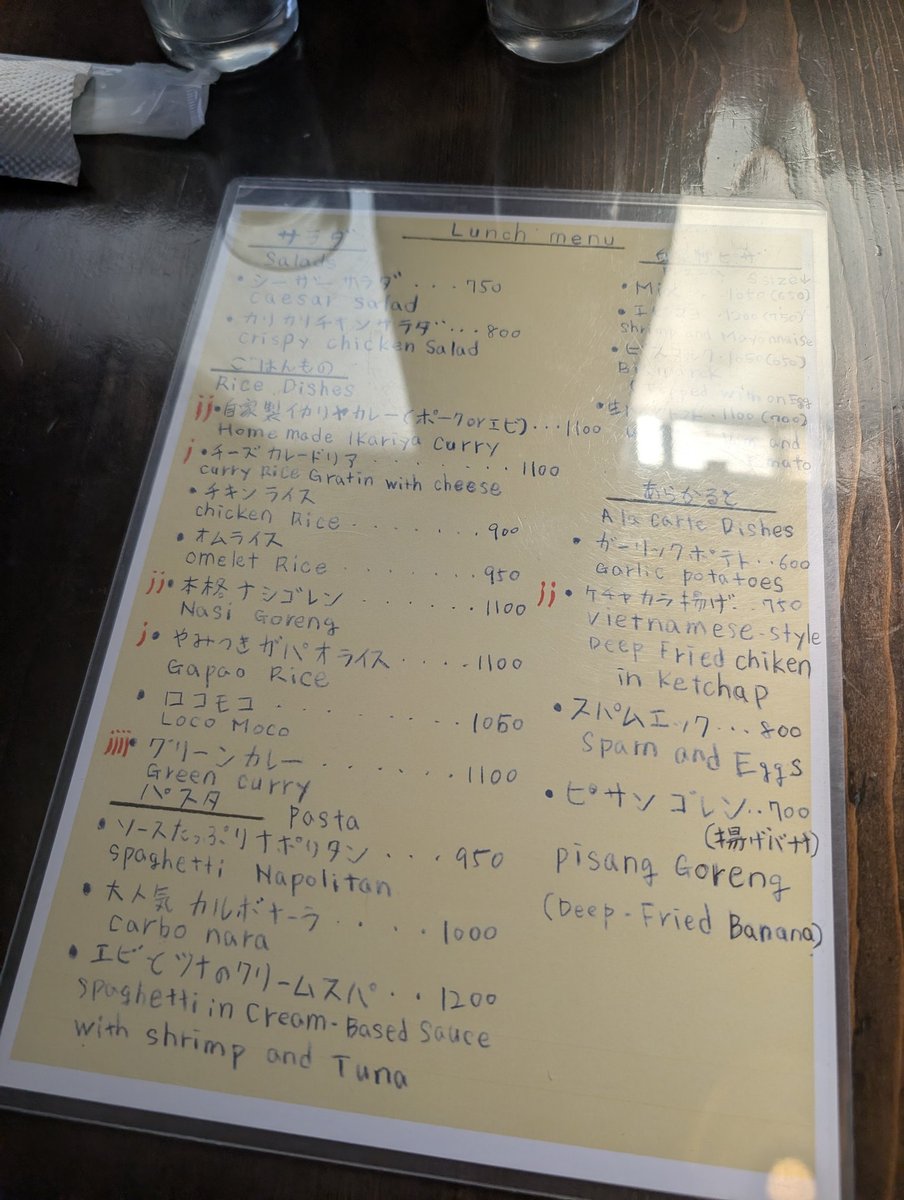 Lunch menu
サラダ
Salads
・シーザーサラダ...750
caesar salad
・カリカリチキンサラダ...800
crispy chicken Salad
ごはんもの
Rice Dishes
・自家製イカリヤカレー(ポークorエビ)...1100
Home made Ikariya curry
・チーズカレードリア........1100
curry Rice Gratin with cheese
・チキンライス
chicken Rice.......900
・オムライス
omelet Rice.......950
・本格ナシゴレン.......1100
Nasi Goreng
・やみつきガパオライス....1100
Gapao Rice
・ロコモコ........1050
Loco Moco
・グリーンカレー......1100
Green curry
パスタ Pasta
・ソースたっぷりナポリタン...950
spaghetti Napolitan
・大人気カルボナーラ...1000
Carbo nara
・エビとツナのクリームスパ..1200
spaghetti in Cream-Based Sauce
with shrimp and Tuna
ピザ
Ssize↓
1050(650)
1200(750)
shrimp and Mayonnaise
1050(650)
Bismarck
with on Egg
1100(700)
and
あらかると
A la carte Dishes
・ガーリックポテト..600
Garlic potatoes
・ケチャカラ揚げ..750
vietnamese-style
Deep Fried chiken
in Ketchap
・スパムエッグ...800
Spam and Eggs
・ピサンゴレン..700
(揚げバナナ)
pisang Goreng
(Deep-Fried Banana)